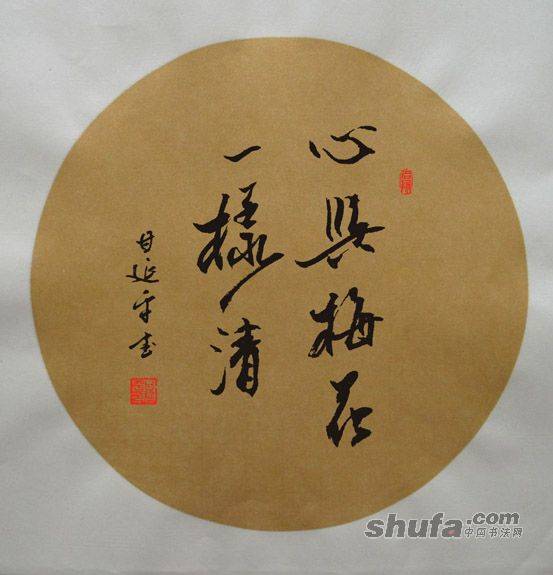 心與梅花
一樣清
甘延平书
shufa.com
中国书法网